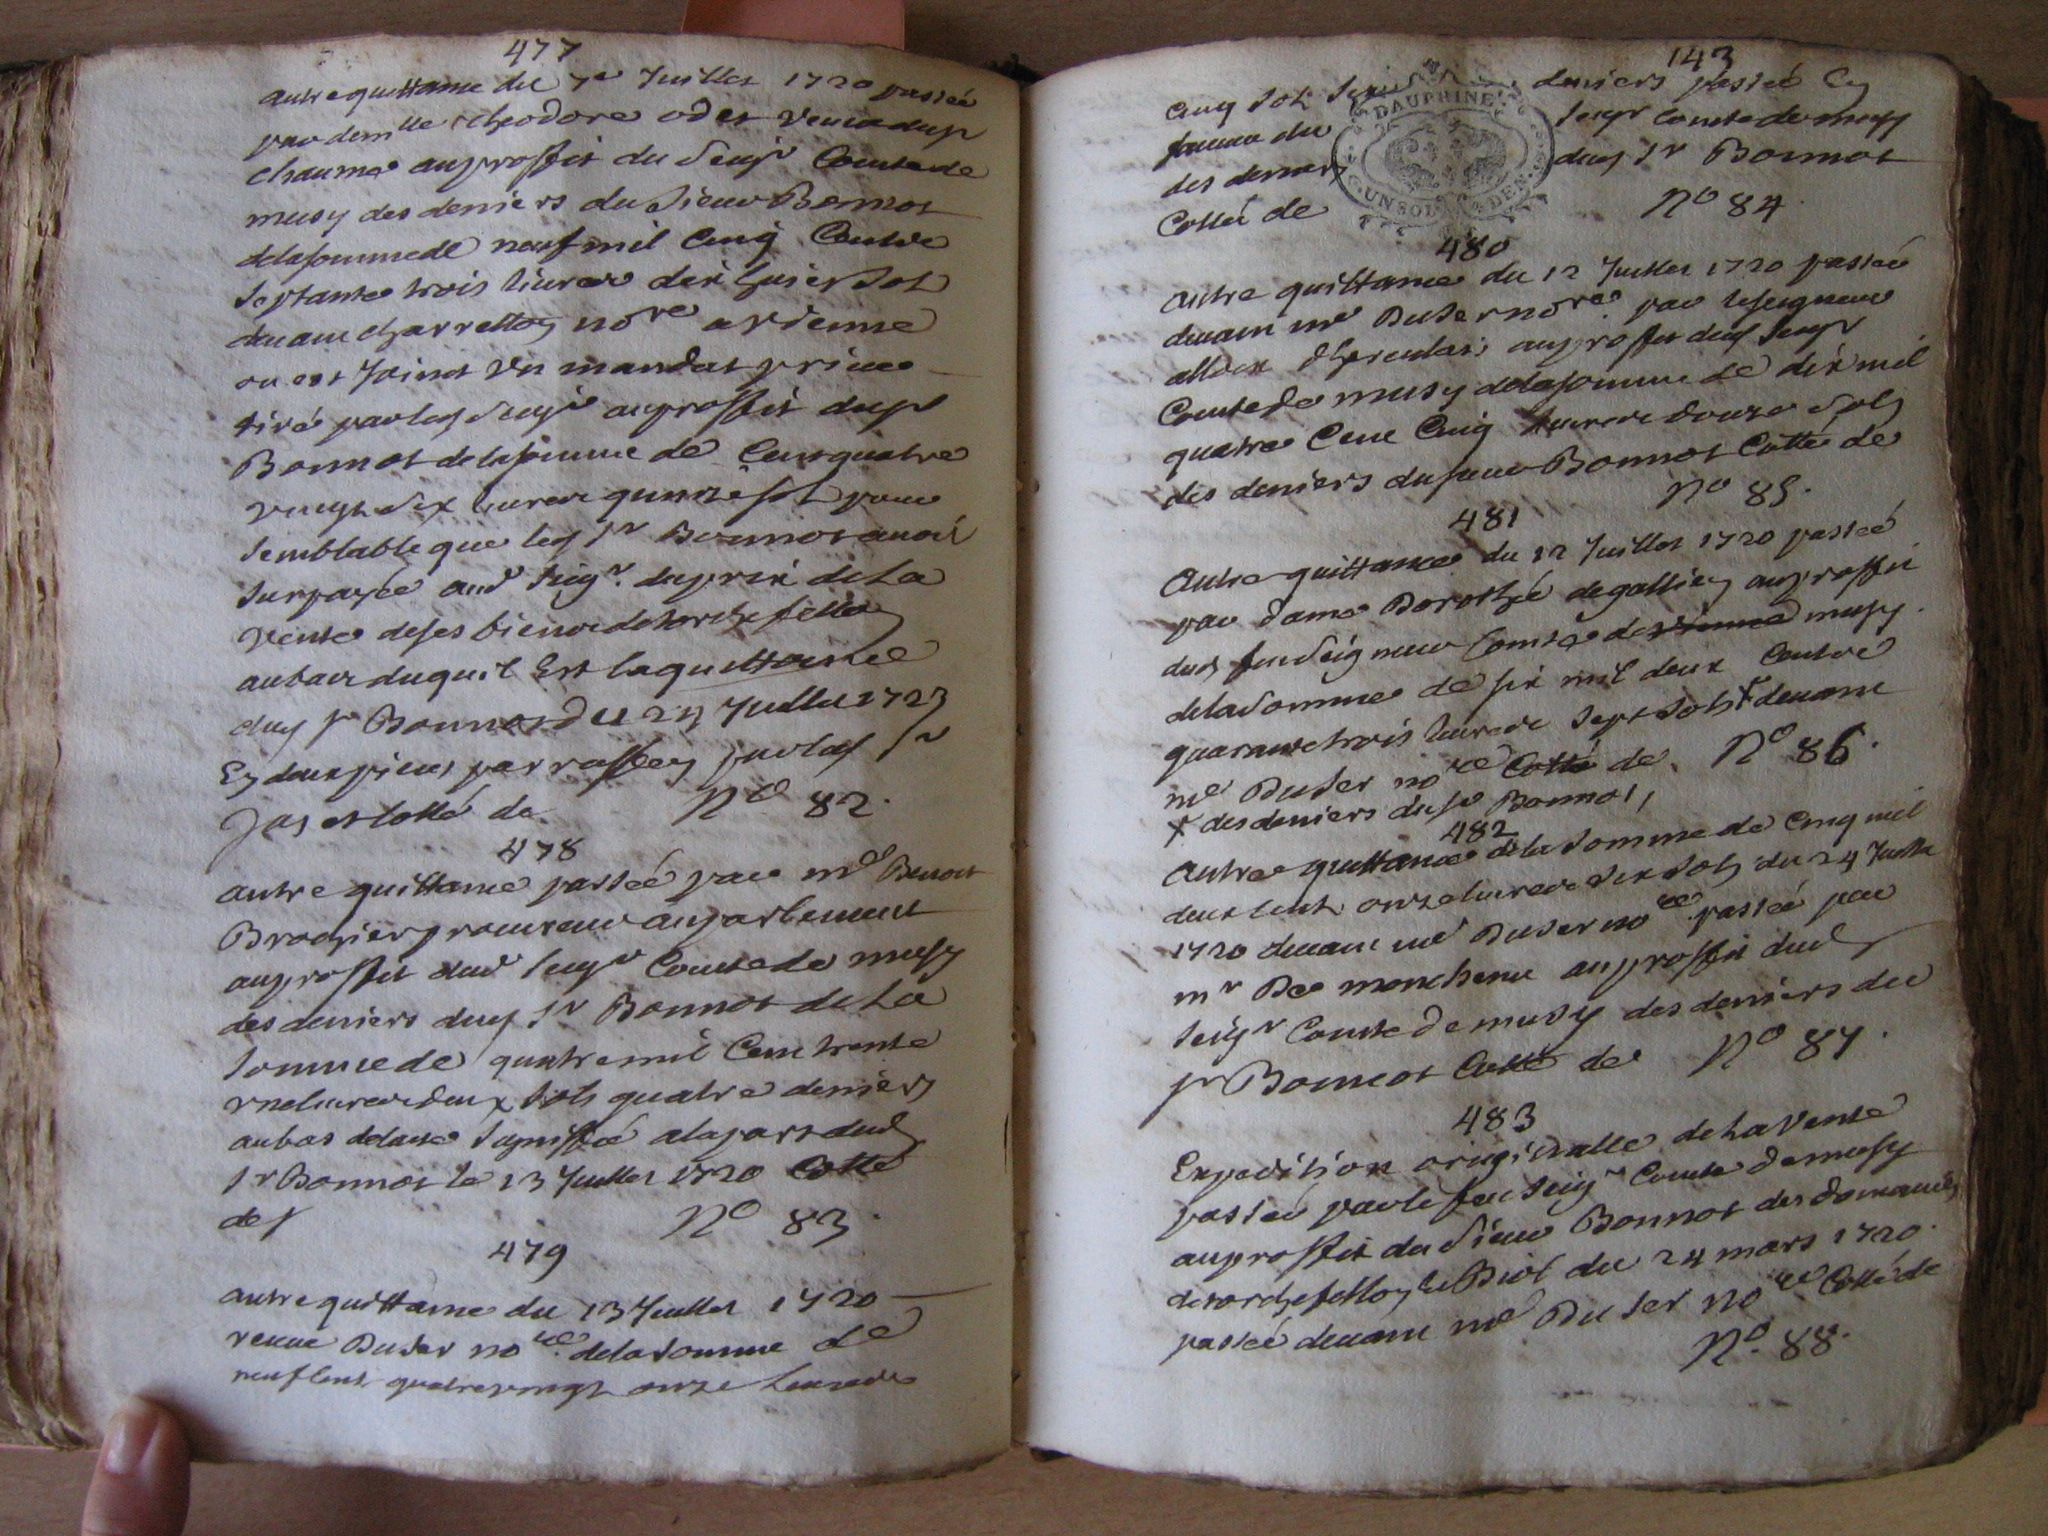 477
autre quittance du 7e Juillet 1720 passée
par demlle theodore odet veuve du sr
chaume au proffit du Seigr Comte de
musy des deniers du Sieur Bonnot
de la somme de neuf mil Cinq Cent
septante trois livres dix huict sols
devant charretton nore a vienne
ou est Joinct un mandat
tiré par led Seigr au proffit dud sr
Bonnot de la somme de Cent quatre
vingt dix livres quinze sols pour
semblable que led sr Bonnot avoit
surpayée aud Seigr du prix de la
vente de ses biens de torchefellon
au bas duquel Est la quittance
dud sr Bonnot du 24 Juillet 1723
En deux pieces parraffées par led sr
Jas et Cotté de No 82.
478
autre quittance passée par me Benoit
Brochier procureur au parlement
au proffit dud Seigr Comte de musy
des deniers dud Sr Bonnot de la
somme de quatre mil Cent trente
une livres deux sols quatre deniers
au bas de lacte signiffié a la part dud
Sr Bonnot le 13 Juillet 1720 Cotté
de No 83.
479
autre quittance du 13 Juillet 1720
receue Buter nore de la somme de
neuf Cent quatre vingt onze livres
143
Cinq sols deniers passée En
faveur du Seigr Comte de musy
des deniers dud Sr Bonnot
Cotté de No 84.
DAUPHINE
480
autre quittance du 12 Juillet 1720 passée
devant me Buter nore par le seigneur
alloix dherculais au proffit dud Seigr
Comte de musy de la somme de dix mil
quatre Cent Cinq livres douze sols
des deniers du sieur Bonnot Cotté de
No 85.
481
Autre quittance du 12 Juillet 1720 passée
par dame Dorothée de gallien au proffit
dud feu Seigneur Comte de vienne musy
de la Somme de six mil deux Cent
quarante trois livres sept sols + devant
me Buter nore Cotté de No 86.
+ des deniers du sr Bonnot,
482
Autre quittance de la somme de Cinq mil
deux Cent onze livres dix sols du 24 Juillet
1720 devant me Buter nore passée par
mr De monchenu au proffit dud
Seigr Comte de musy des deniers du
sr Bonnot Cotté de No 87.
483
Expedition originalle de la vente
passée par le feu Seigr Comte de musy
au proffit du Sieur Bonnot des domaines
de torchefellon le Biol du 24 mars 1720
passée devant me Buter nore Cotté de
No. 88.